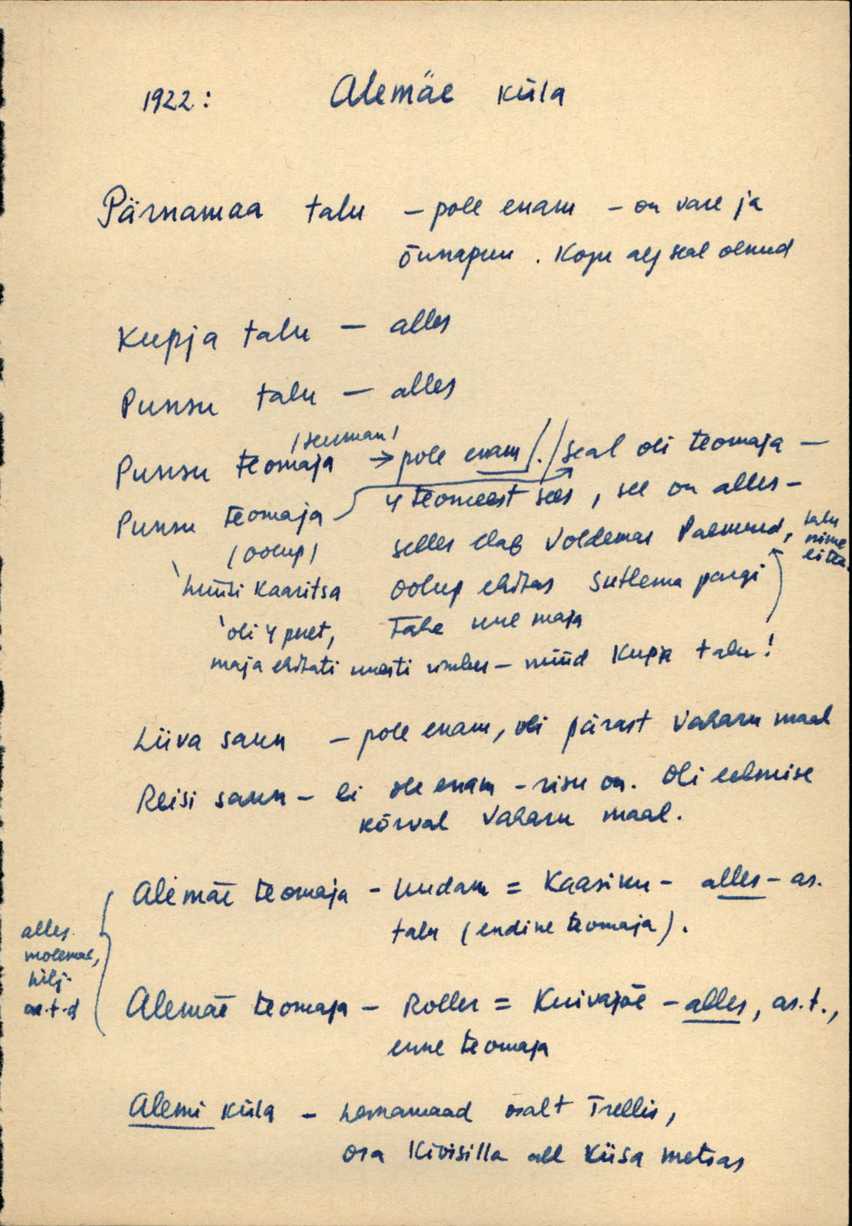 1922: Alemäe küla
Pärnamaa talu – pole enam – on vare ja
õunapuu. Kogu alg seal olnud
Kupja talu – alles
Punsu talu – alles
Punsu teomaja → pole enam/./ seal oli teomaja –
4 teomeest sees, see on alles –
Punsu teomaja
(Oolup)
selles elab Voldemar
talu nime ei tea.
Kaaritsa
Oolup ehitas Sutlema pargi
'oli 4 peret,
taha uue maja
maja ehitati uuesti ümber – nüüd Kupja talu!
Liiva saun – pole enam, oli pärast Vaharu maal
Reisi saun – ei ole enam – risu on. Oli eelmise
kõrval Vaharu maal.
Alemäe teomaja – Uudam = Kaasiku – alles – as.
talu (endine teomaja).
alles
molemad,
hilj.
as.t-d
Alemäe teomaja – Roller = Kuivajõe – alles, as.t.,
enne teomaja
Alemi küla – heinamaad osalt Trellis,
osa Kivisilla all Kiisa metsas